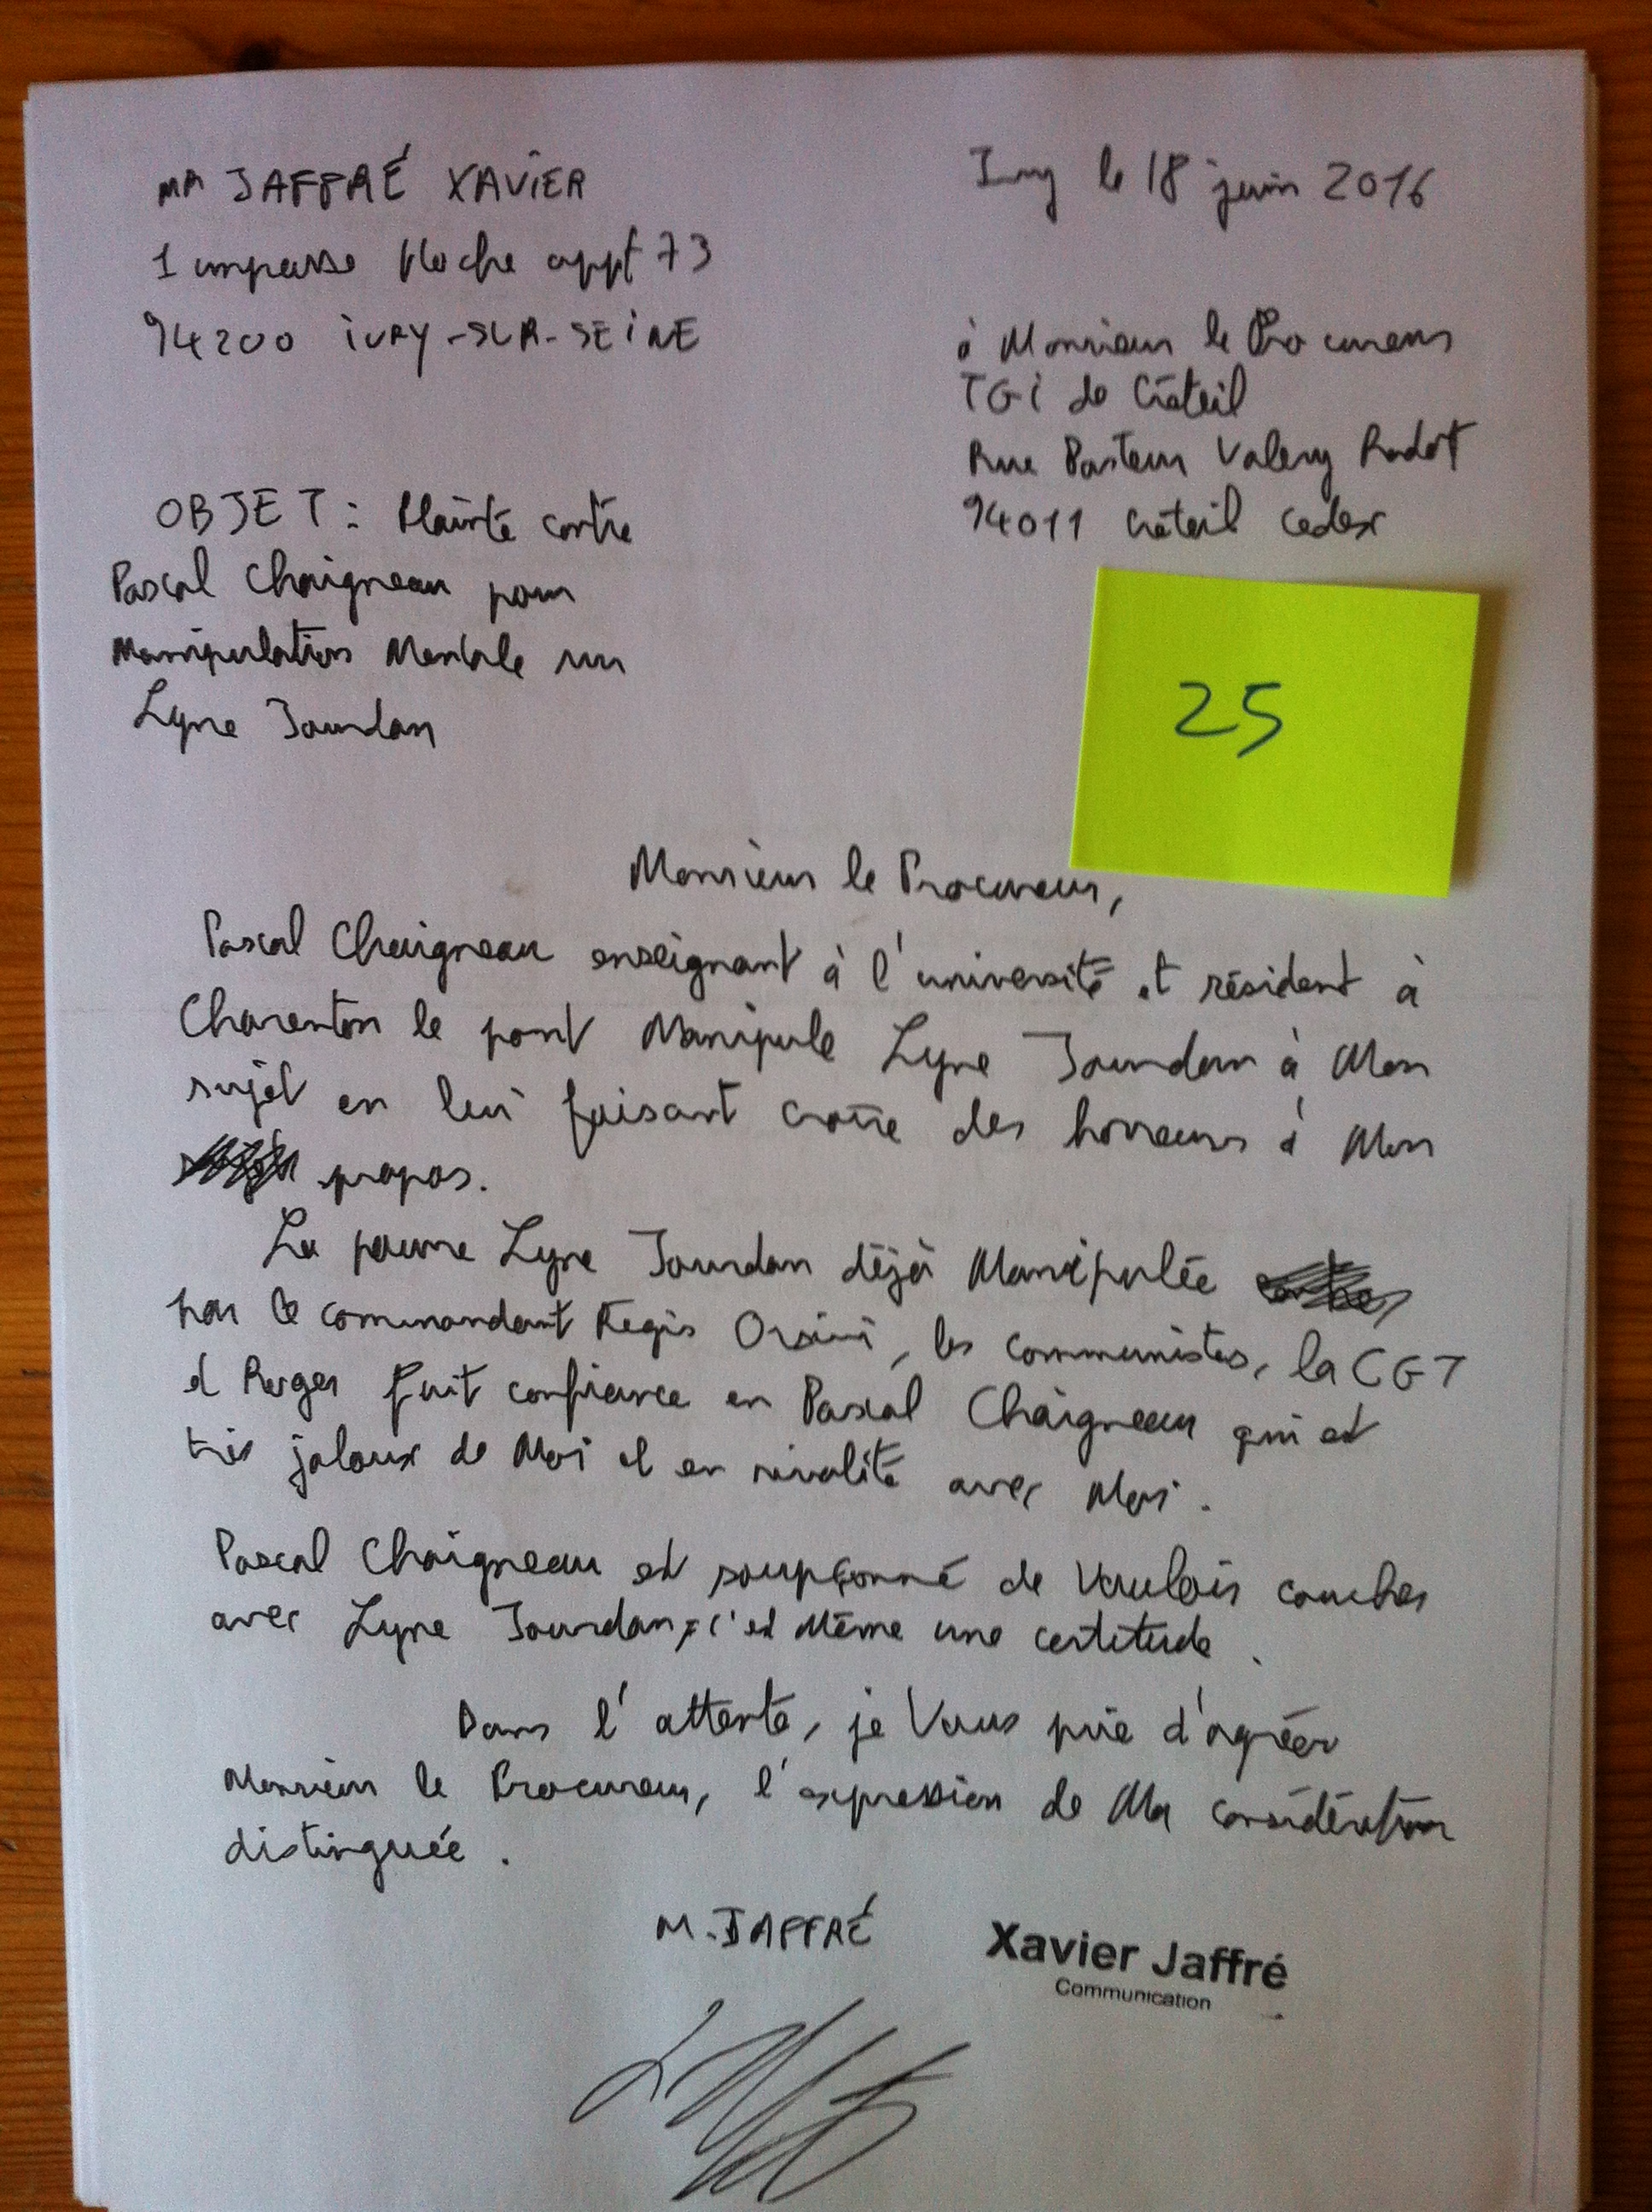 MR JAFFRÉ XAVIER
1 impasse Hoche appt 73
94200 IVRY-SUR-SEINE
Ivry le 18 juin 2016
à Monsieur le Procureur
TGI de Créteil
Rue Pasteur Valery Radot
94011 Créteil cedex
OBJET : Plainte contre
Pascal Chaigneau pour
Manipulation Mentale sur
Lyne Jourdan
25
Monsieur le Procureur,
Pascal Chaigneau enseignant à l'université et résident à
Charenton le pont Manipule Lyne Jourdan à Mon
sujet en lui faisant croire des horreurs à Mon
propos.
La pauvre Lyne Jourdan déjà Manipulée
par le commandant Regis Orsini, les communistes, la CGT
et Roger fait confiance en Pascal Chaigneau qui est
très jaloux de Moi et en rivalité avec Moi.
Pascal Chaigneau est soupçonné de Vouloir coucher
avec Lyne Jourdan, c'est Même une certitude.
Dans l'attente, je Vous prie d'agréer
Monsieur le Procureur, l'expression de Ma considération
distinguée.
M. JAFFRÉ
Xavier Jaffré
Communication